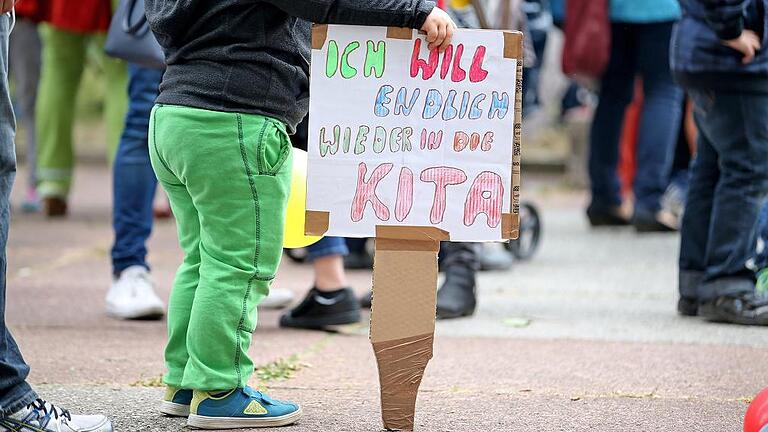 ICH WILL
ENDLICH
WIEDER IN DIE
KITA